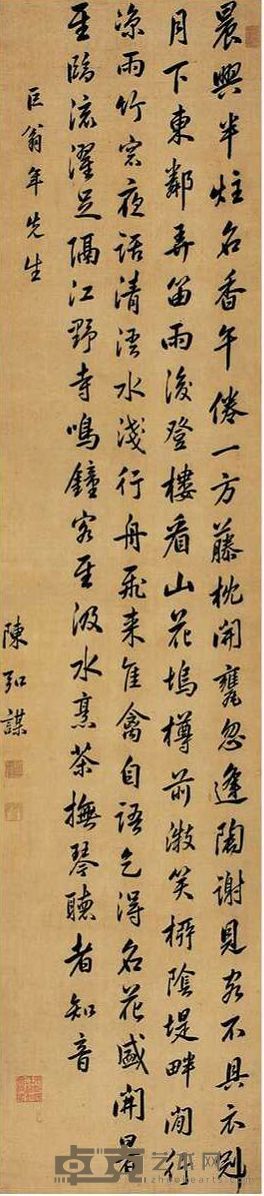 晨興半炷名香午倦一方藤枕開甕忽逢陶謝見客不具衣冠
月下東鄰弄笛雨後登樓看山花塢樽前微笑柳陰堤畔閒行
涼雨竹窗夜話清溪水淺行舟飛來佳禽自語乞得名花盛開暑
至臨流濯足隔江野寺鳴鐘客至汲水烹茶撫琴聽者知音
巨翁年先生
陳弘謀
卓克艺术网
zhuokearts.com